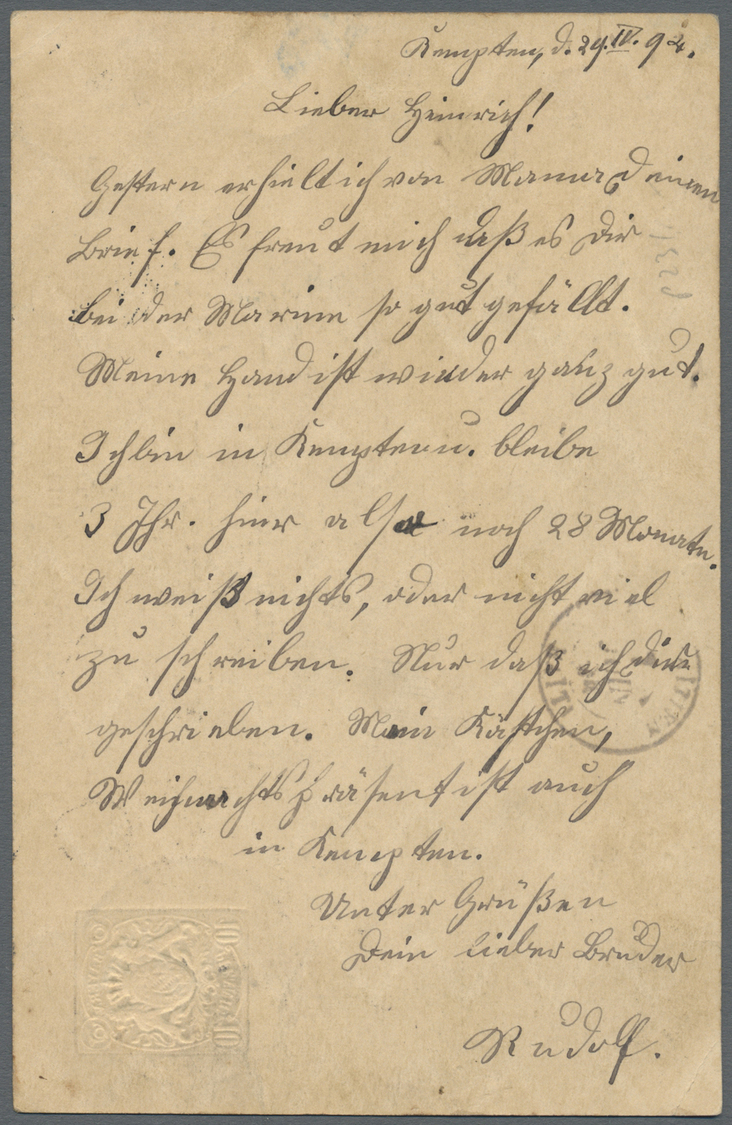 Kempten, d. 29.IV.92.
Lieber Heinrich!
Gestern erhielt ich von Mama Deinen
Brief. Es freut mich daß es Dir
bei der Marine so gut gefällt.
Meine Hand ist wieder ganz gut.
Ich bin in Kempten u. bleibe
3 Jhr. hier also noch 28 Monate.
Ich weiß nichts, oder nicht viel
zu schreiben. Nur daß ich dir
geschrieben. Mein Kästchen,
Weihnachtspräsent ist auch
in Kempten.
Unter Grüßen
Dein lieber Bruder
Rudolf.